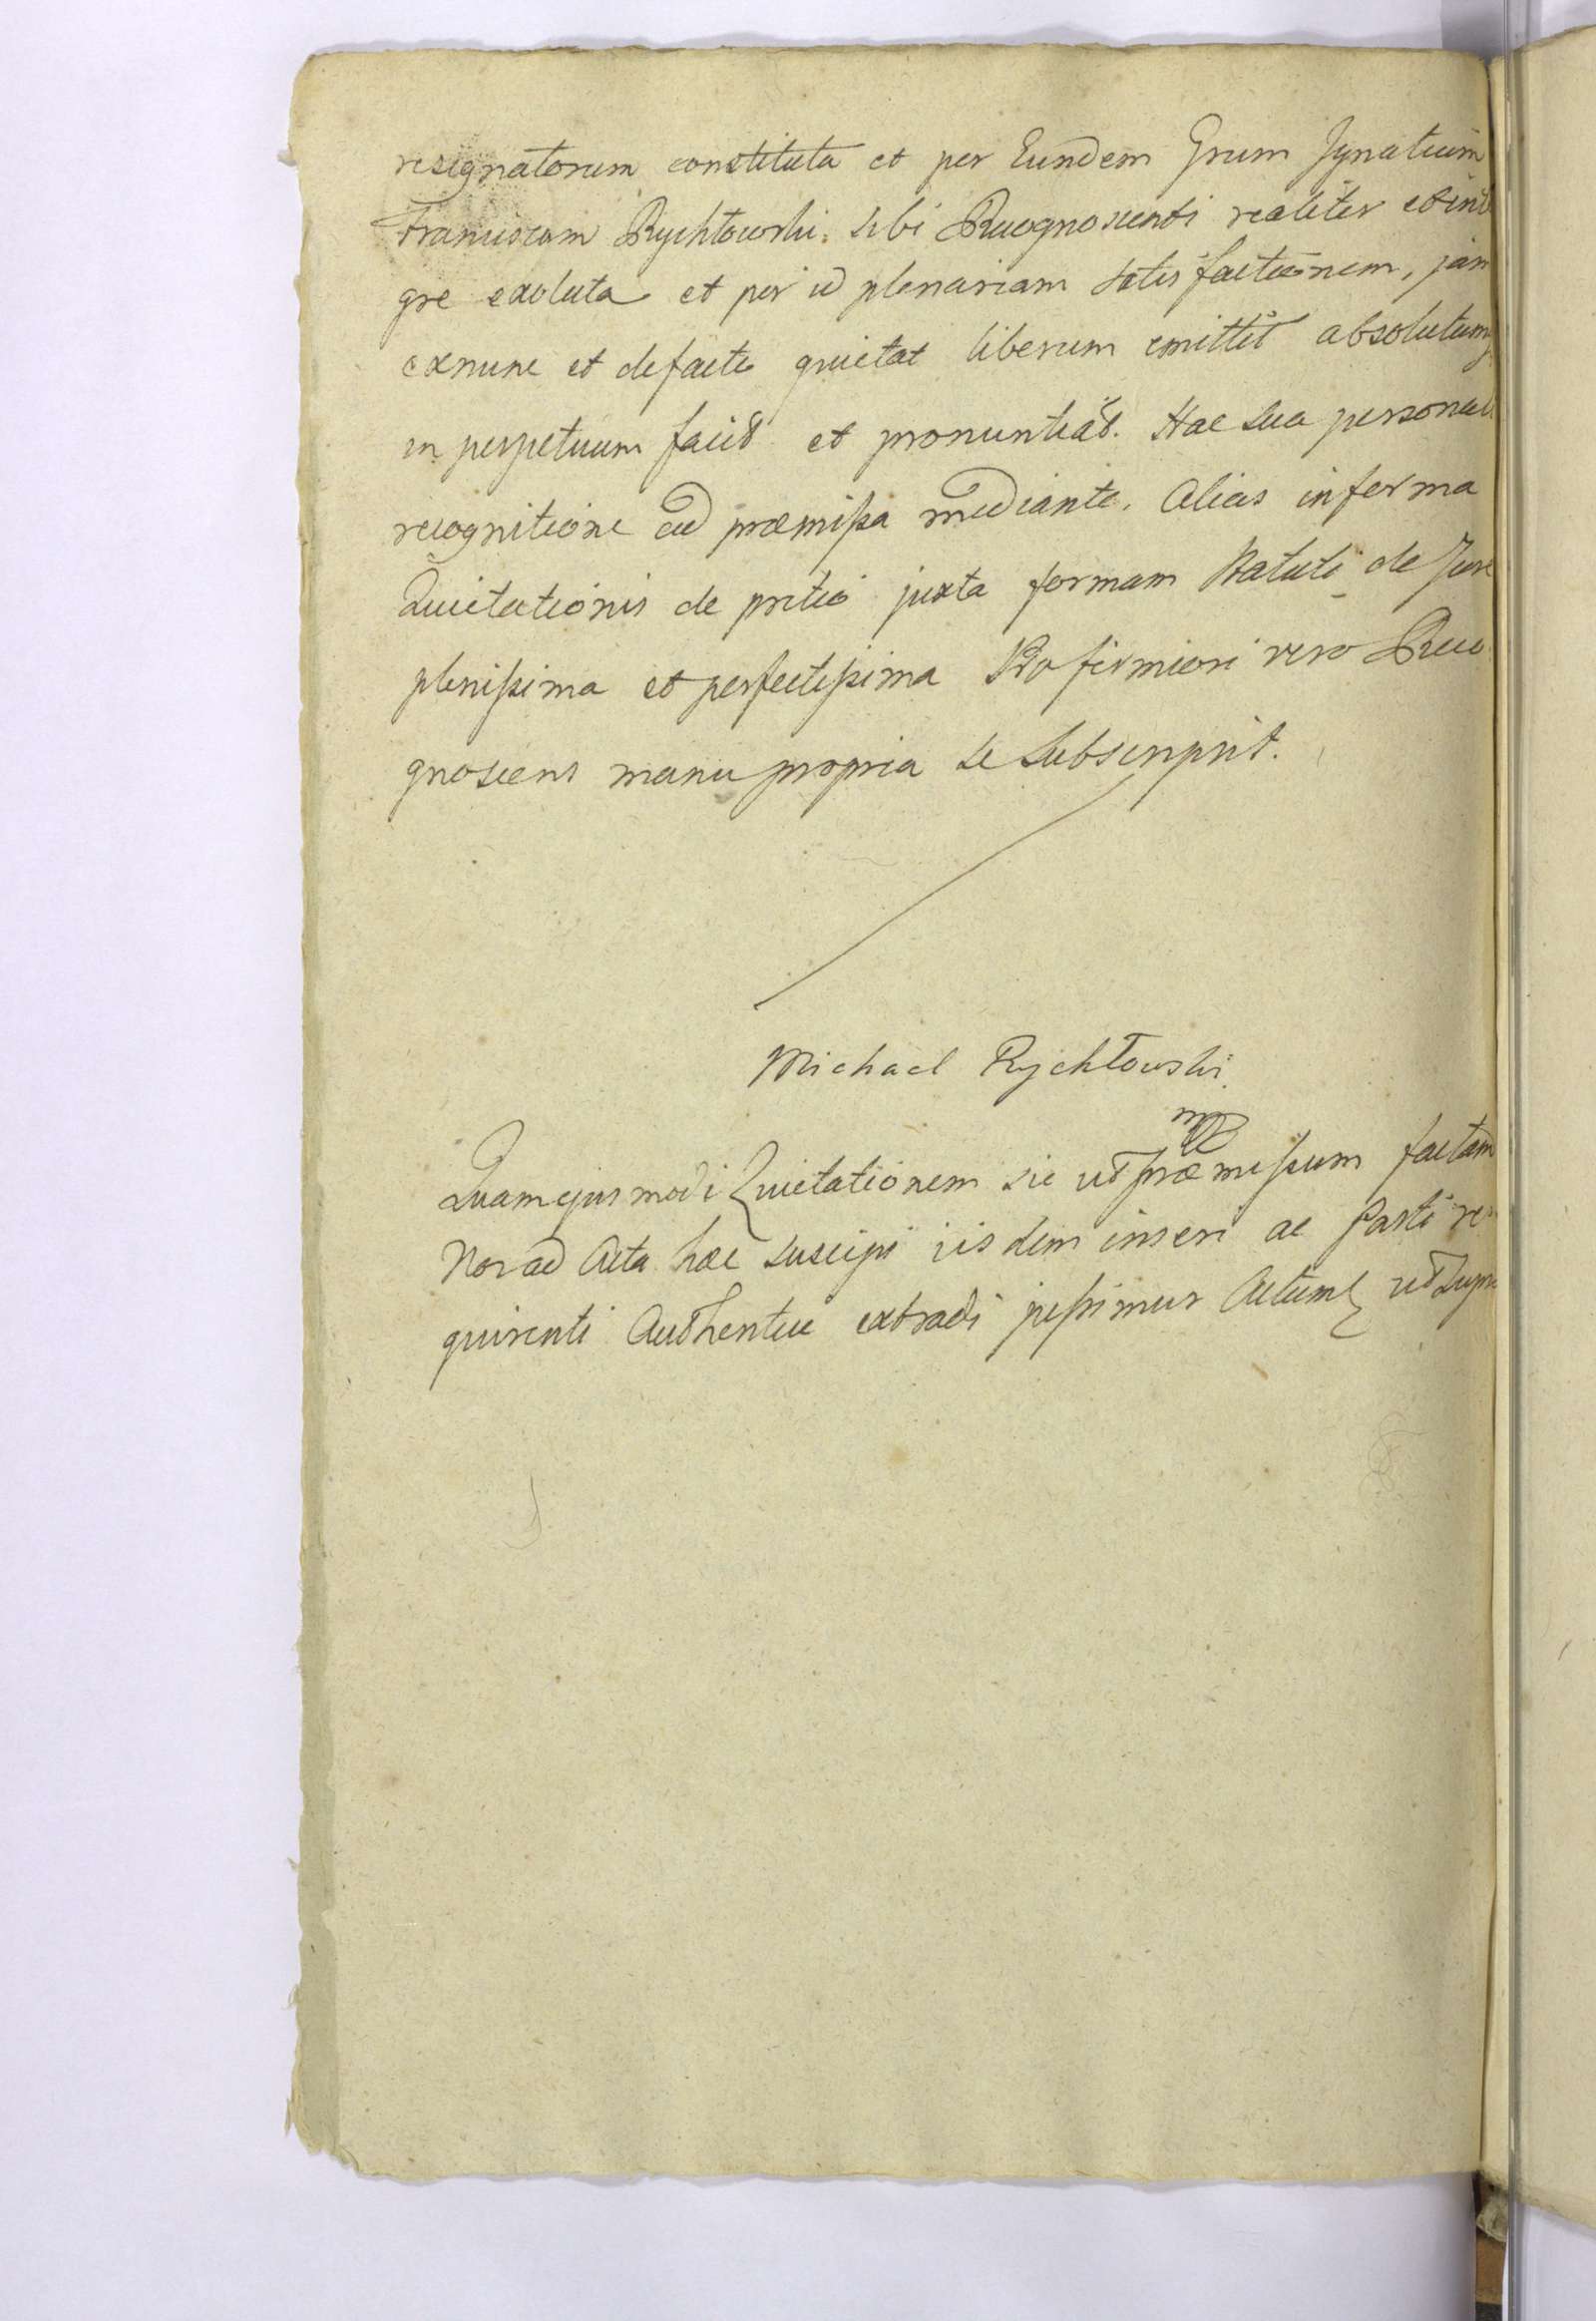 resignatorum constituta et per Eundem Grum Ignatium
Franciscum Rychłowski sibi Recognoscenti realiter et inte
gre exoluta et per id plenariam satisfactionem, jam
exnunc et defacto quietat liberum emittit absolutumq
in perpetuum facit et pronuntiat. Hac sua personali
recognitione ad præmissa mediante. Alias in forma
Quietationis de pretio juxta formam Statuti de Jure
plenissima et perfectissima Pro firmiori vero Reco
gnoscens manu propria se subscripsit.
Michael Rychłowski
mp
Quam ejusmodi Quietationem sic ut præmissum factam
Nos ad Acta hæc suscipi iisdem inseri ac Parti re
quirenti Authentice extradi jussimus Actum ut supra